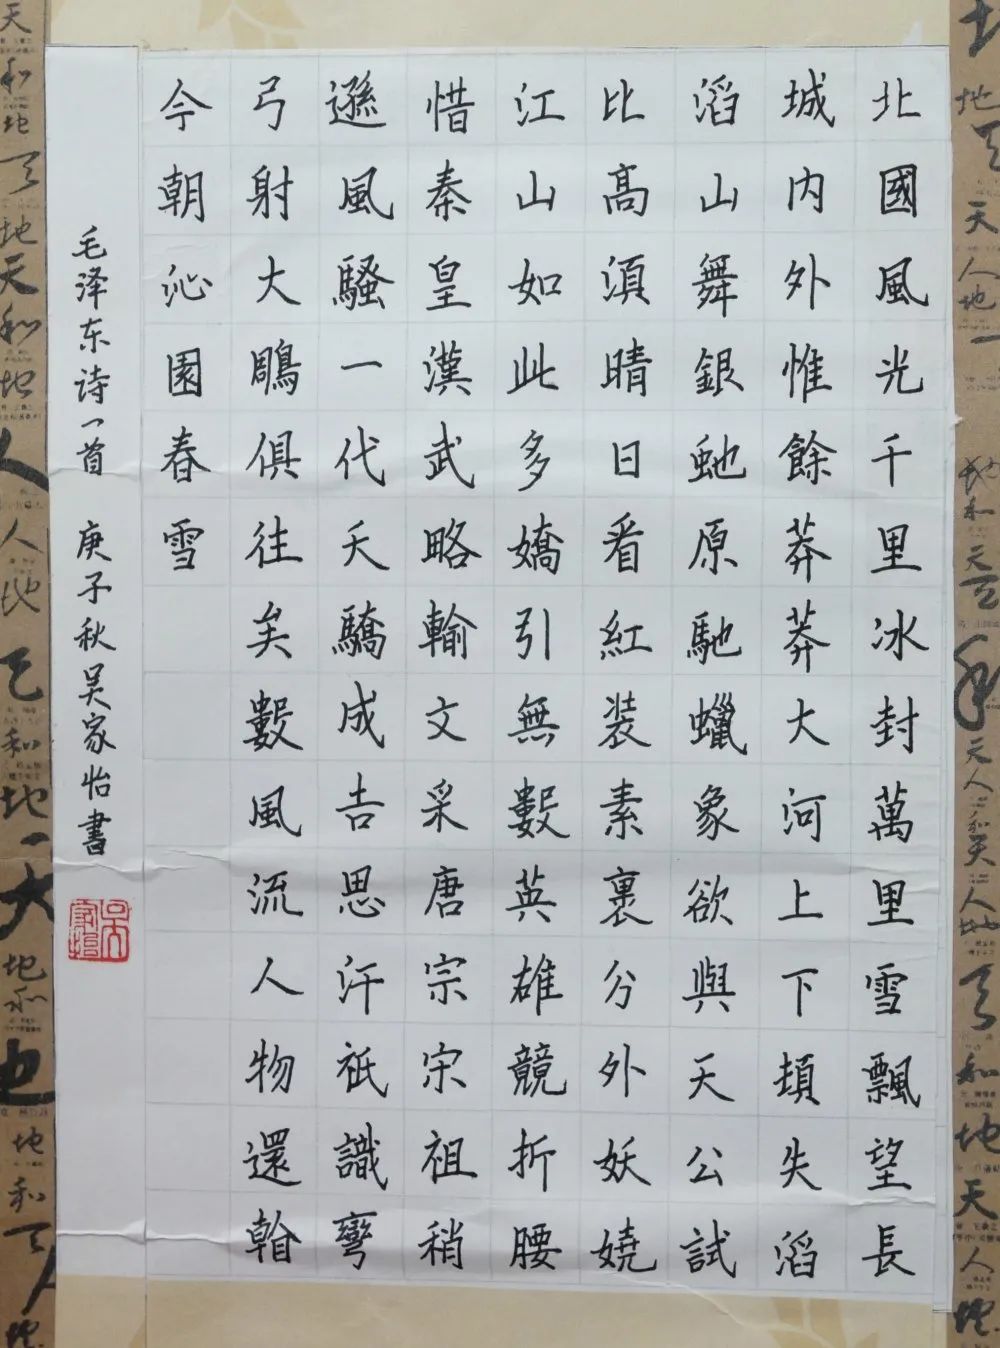 北國風光千里冰封萬里雪飄望長
城内外惟餘莽莽大河上下頓失滔
滔山舞銀虵原馳蠟象欲與天公試
比高須晴日看紅装素裹分外妖嬈
江山如此多嬌引無數英雄競折腰
惜秦皇漢武略輸文采唐宗宋祖稍
遜風騷一代天驕成吉思汗祇識彎
弓射大鵰俱往矣數風流人物還看
今朝沁園春雪
毛泽东诗一首 庚子秋吴家怡書
吳家怡